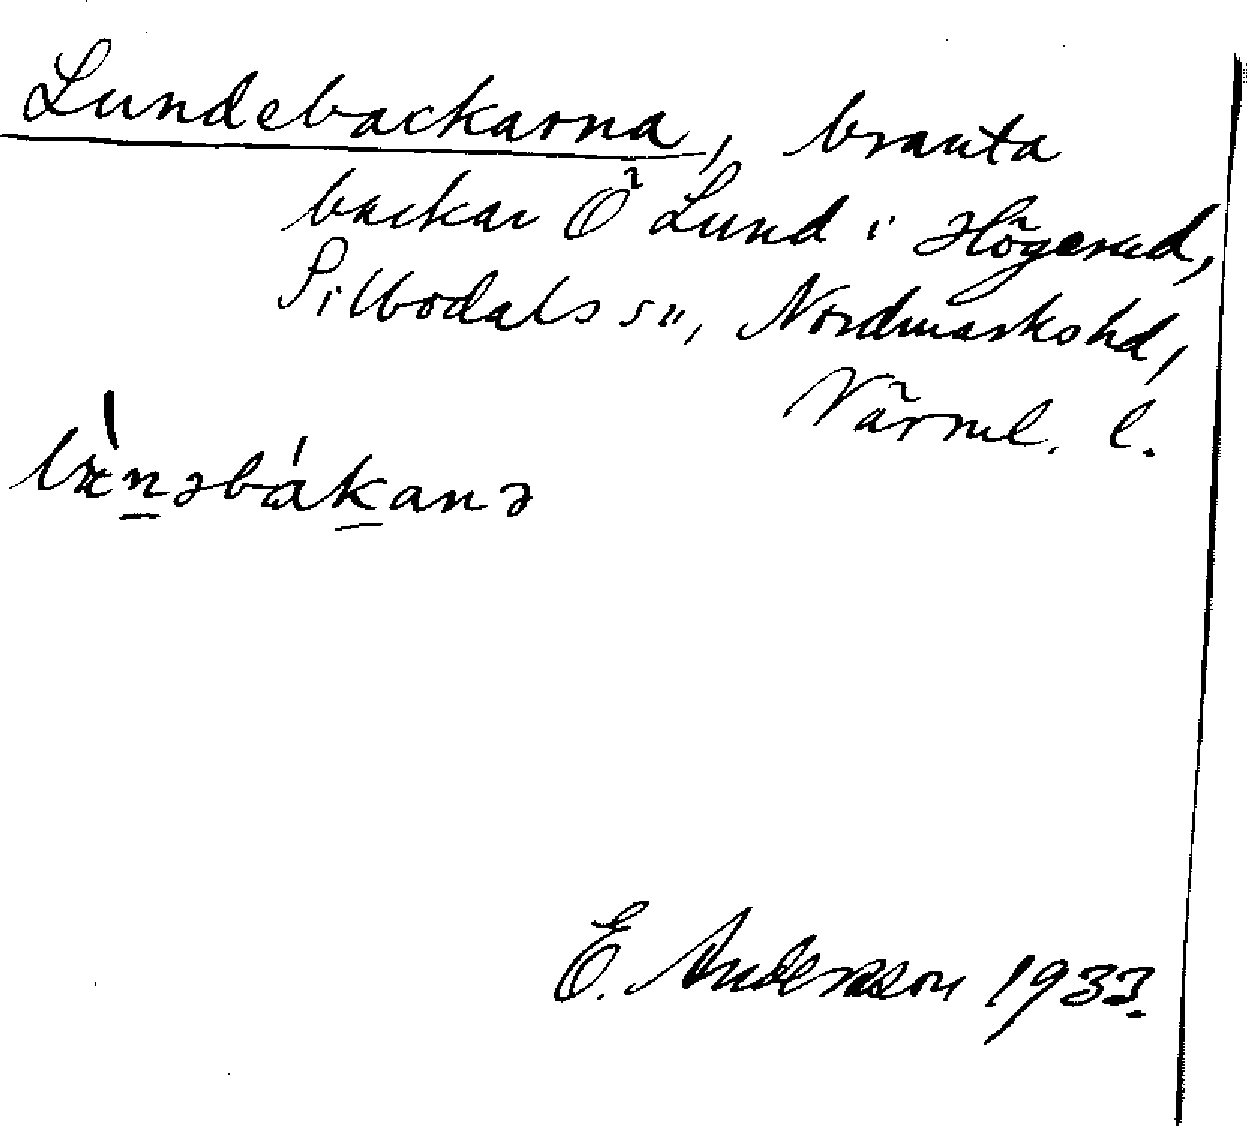 Lundebackarna, branta
backar Ö Lund i Högerud,
Sillbodals sn, Nordmarks hd,
Värml. l.
E. Andersson 1933.